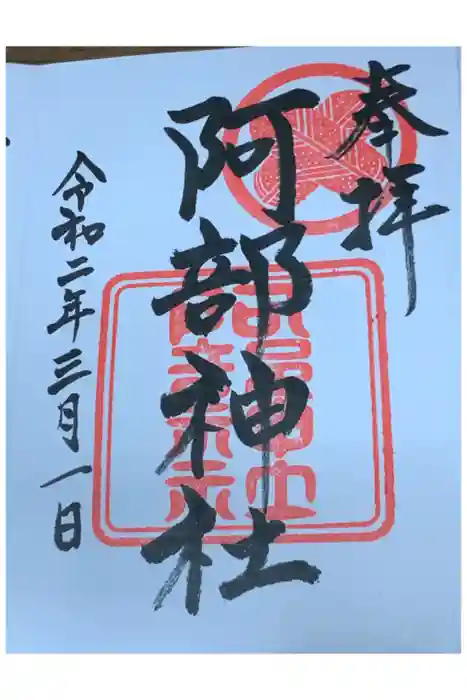 奉拝
阿部神社
令和二年三月一日